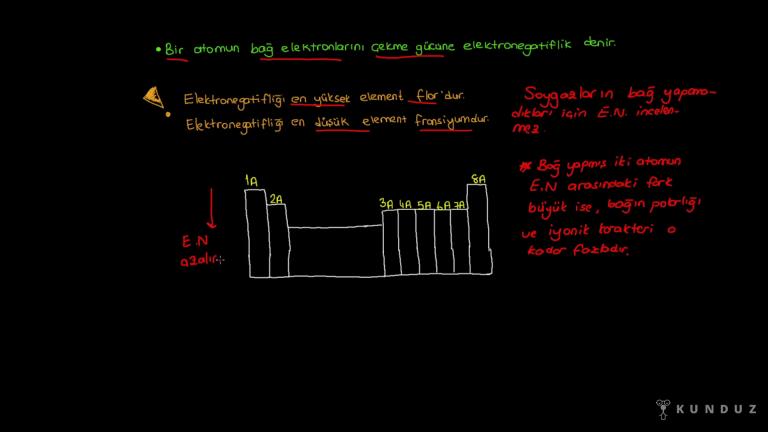 • Bir atomun bağ elektronlarını çekme gücüne elektronegatiflik denir.
Elektronegatifliği en yüksek element flor'dur.
Elektronegatifliği en düşük element fransiyumdur.
Soygazların bağ yapama-
dıkları için E.N. incelen-
mez.
* Bağ yapmış iki atomun
E.N arasındaki fark
büyük ise, bağın polarlığı
ve iyonik karakteri o
kadar fazladır.
1A
2A
3A 4A 5A 6A 7A
8A
E.N
azalır.
KUNDUZ